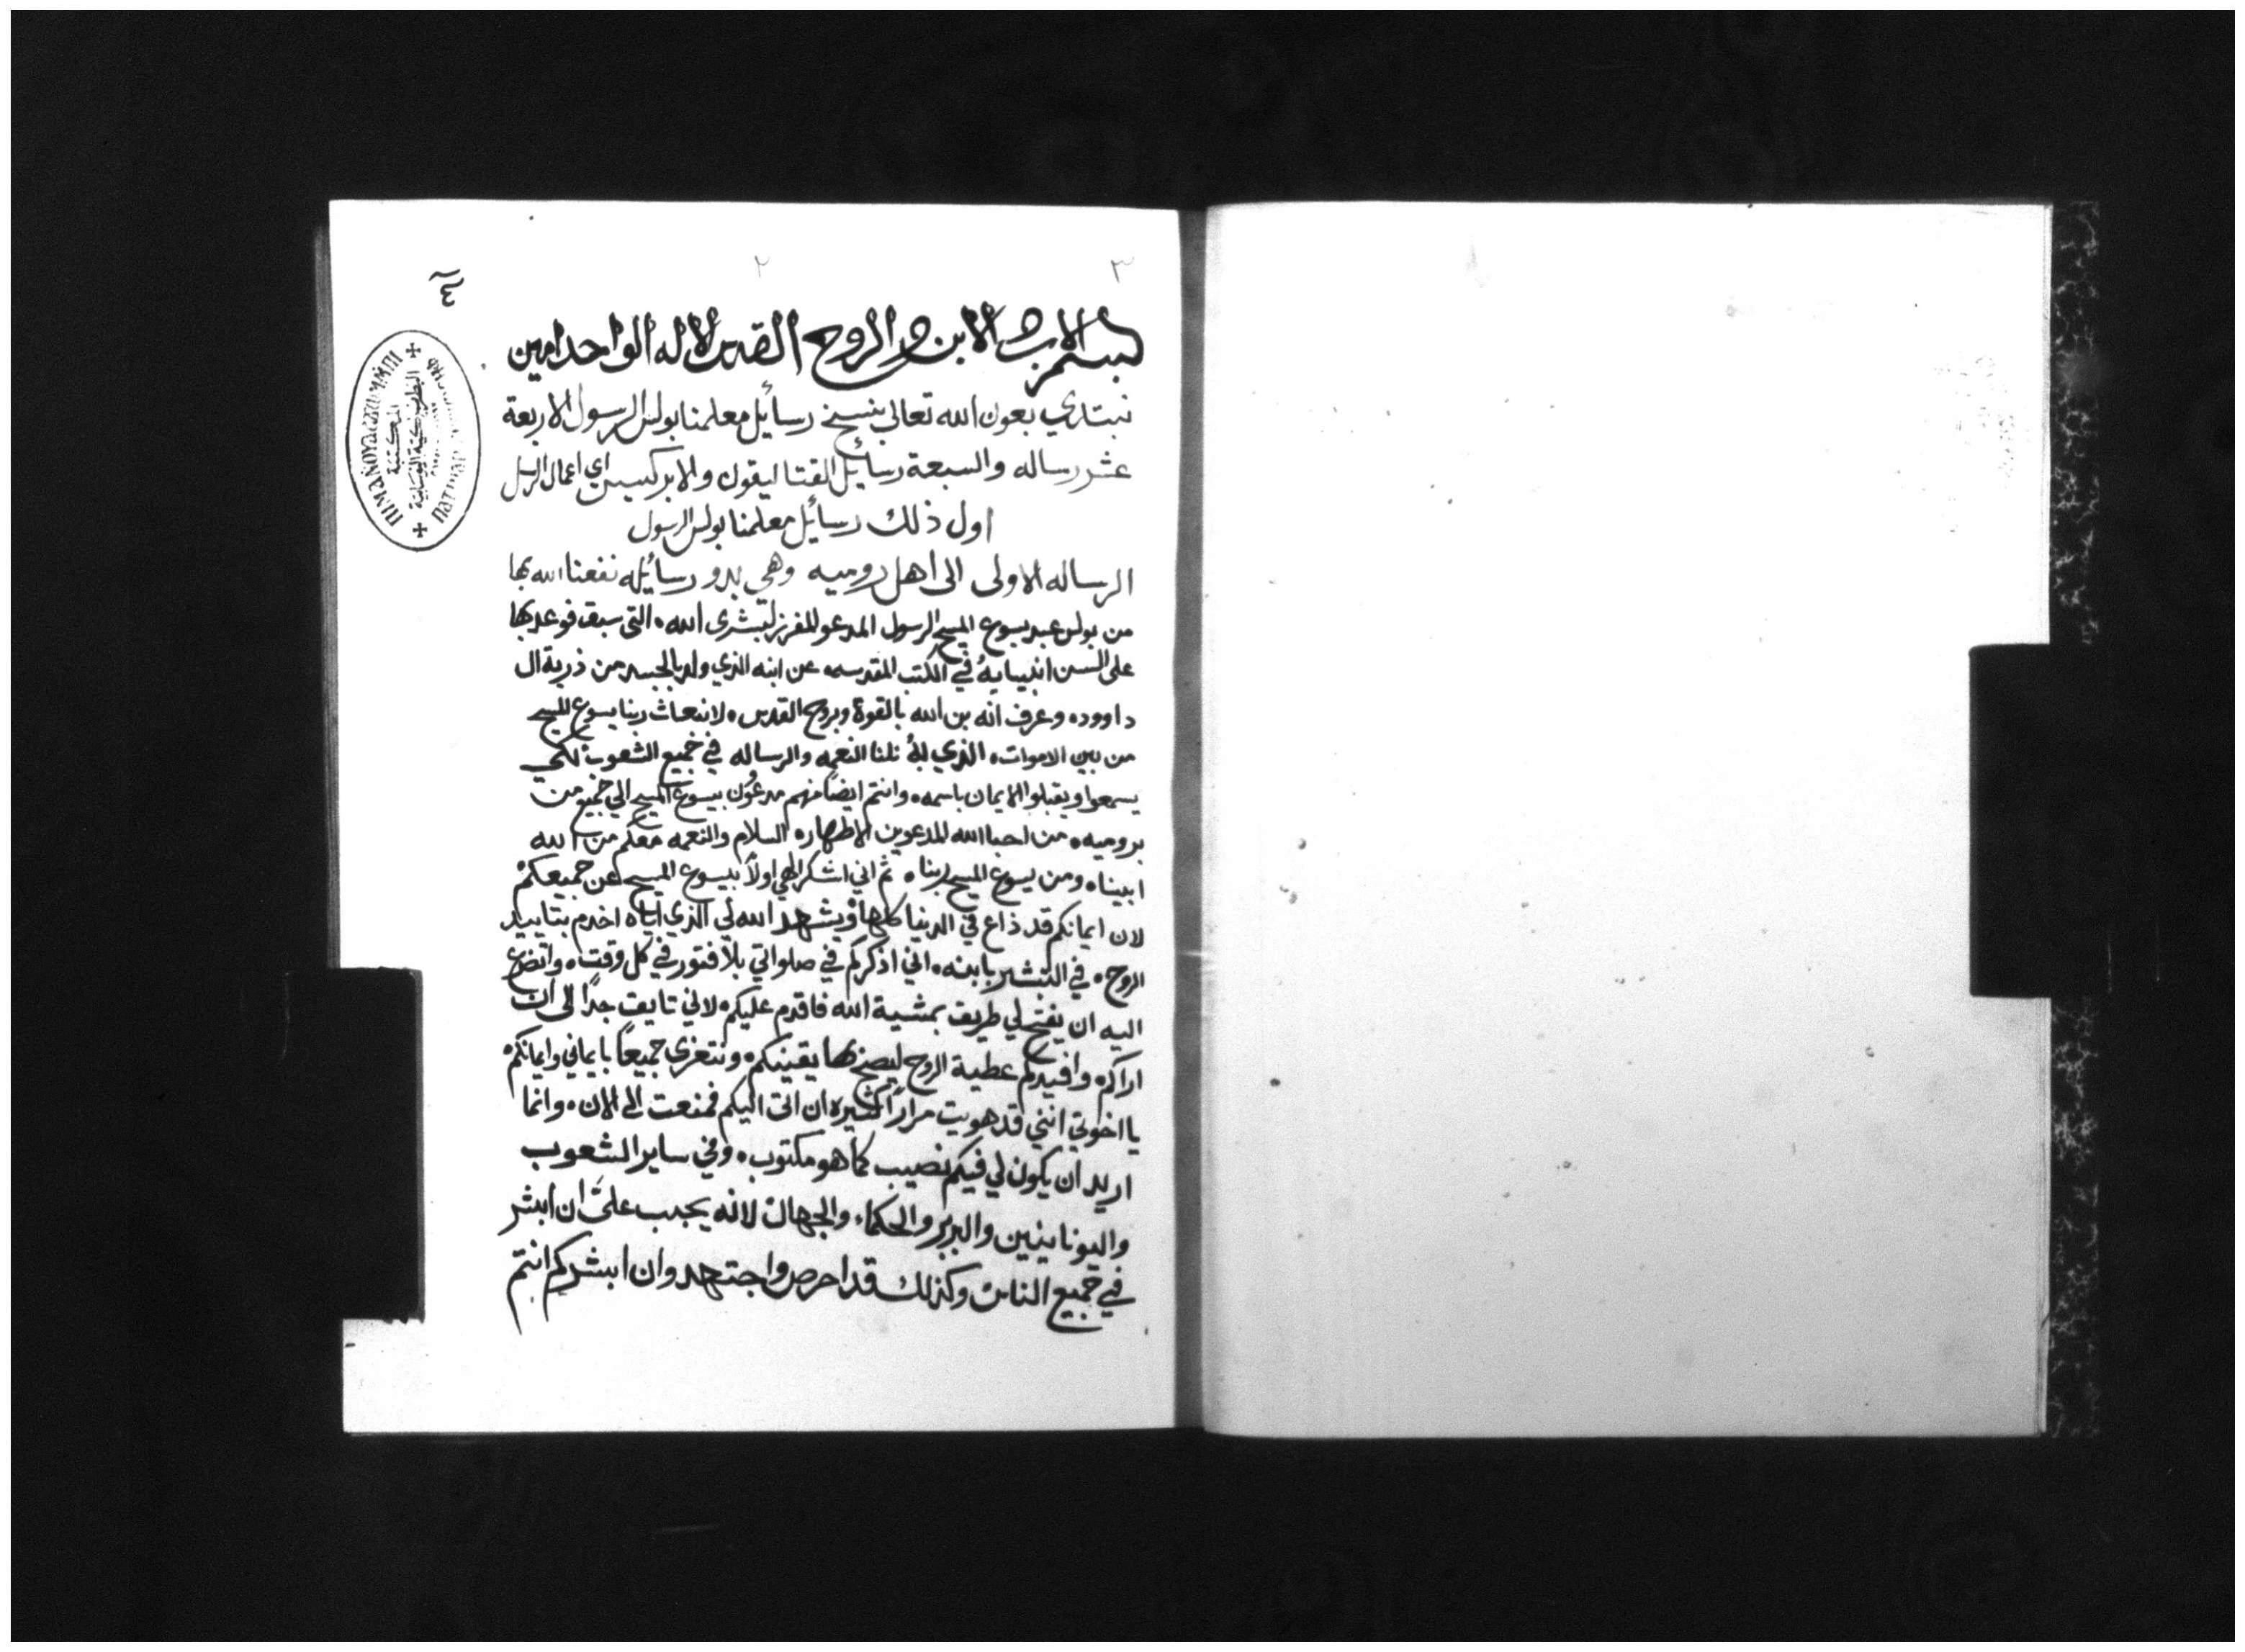 ٣
٢
٤
بسم الاب والابن والروح القدس الاله الواحد امين
نبتدي بعون الله تعالى بنسخ رسايل معلمنا بولس الرسول الاربعة
عشر رساله والسبعة رسايل القتاليقون والابركسيس اي اعمال الرسل
اول ذلك رسايل معلمنا بولس الرسول
الرساله الاولى الى اهل روميه وهى بدو رسايله نفعنا الله بها
من بولس عبد يسوع المسيح الرسول المدعو المفرز لبشرى الله التى سبق فوعد بها
على السن انبيايه في الكتب المقدسه عن ابنه الذي ولد بالجسد من ذرية ال
داوود وعرف انه بن الله بالقوة وبروح القدس لانبعاث ربنا يسوع المسيح
من بين الاموات الذي به نلنا النعمه والرساله في جميع الشعوب لكي
يسمعوا ويقبلوا الايمان باسمه وانتم ايضا منهم مدعون بيسوع المسيح الي جميع من
بروميه من احبا الله المدعوين الاطهار السلام والنعمه معكم من الله
ابينا ومن يسوع المسيح ربنا ثم اني اشكر الهي اولاً بيسوع المسيح عن جميعكم
لان ايمانكم قد ذاع في الدنيا كلها ويشهد الله لي الذي اياه اخدم بتاييد
الروح في التبشير بابنه اني اذكركم في صلواتي بلا فتور في كل وقت واتضرع
اليه ان يفتح لي طريق بمشية الله فاقدم عليكم لاني تايق جداً الى ان
اراكم وافيدكم عطية الروح ليصح بها يقينكم ونتعزى جميعاً بايماني وايمانكم
يا اخوتي انني قد هويت مراراً كثيره ان اتى اليكم فمنعت الى الان وانما
اريد ان يكون لي فيكم نصيب كما هو مكتوب وفي ساير الشعوب
واليونانيين والبربر والحكماء والجهال لانه يجب علىَّ ان ابشر
في جميع الناس وكذلك قد احرص واجتهد وان ابشركم انتم
المكتبة
البطريركية القبطية